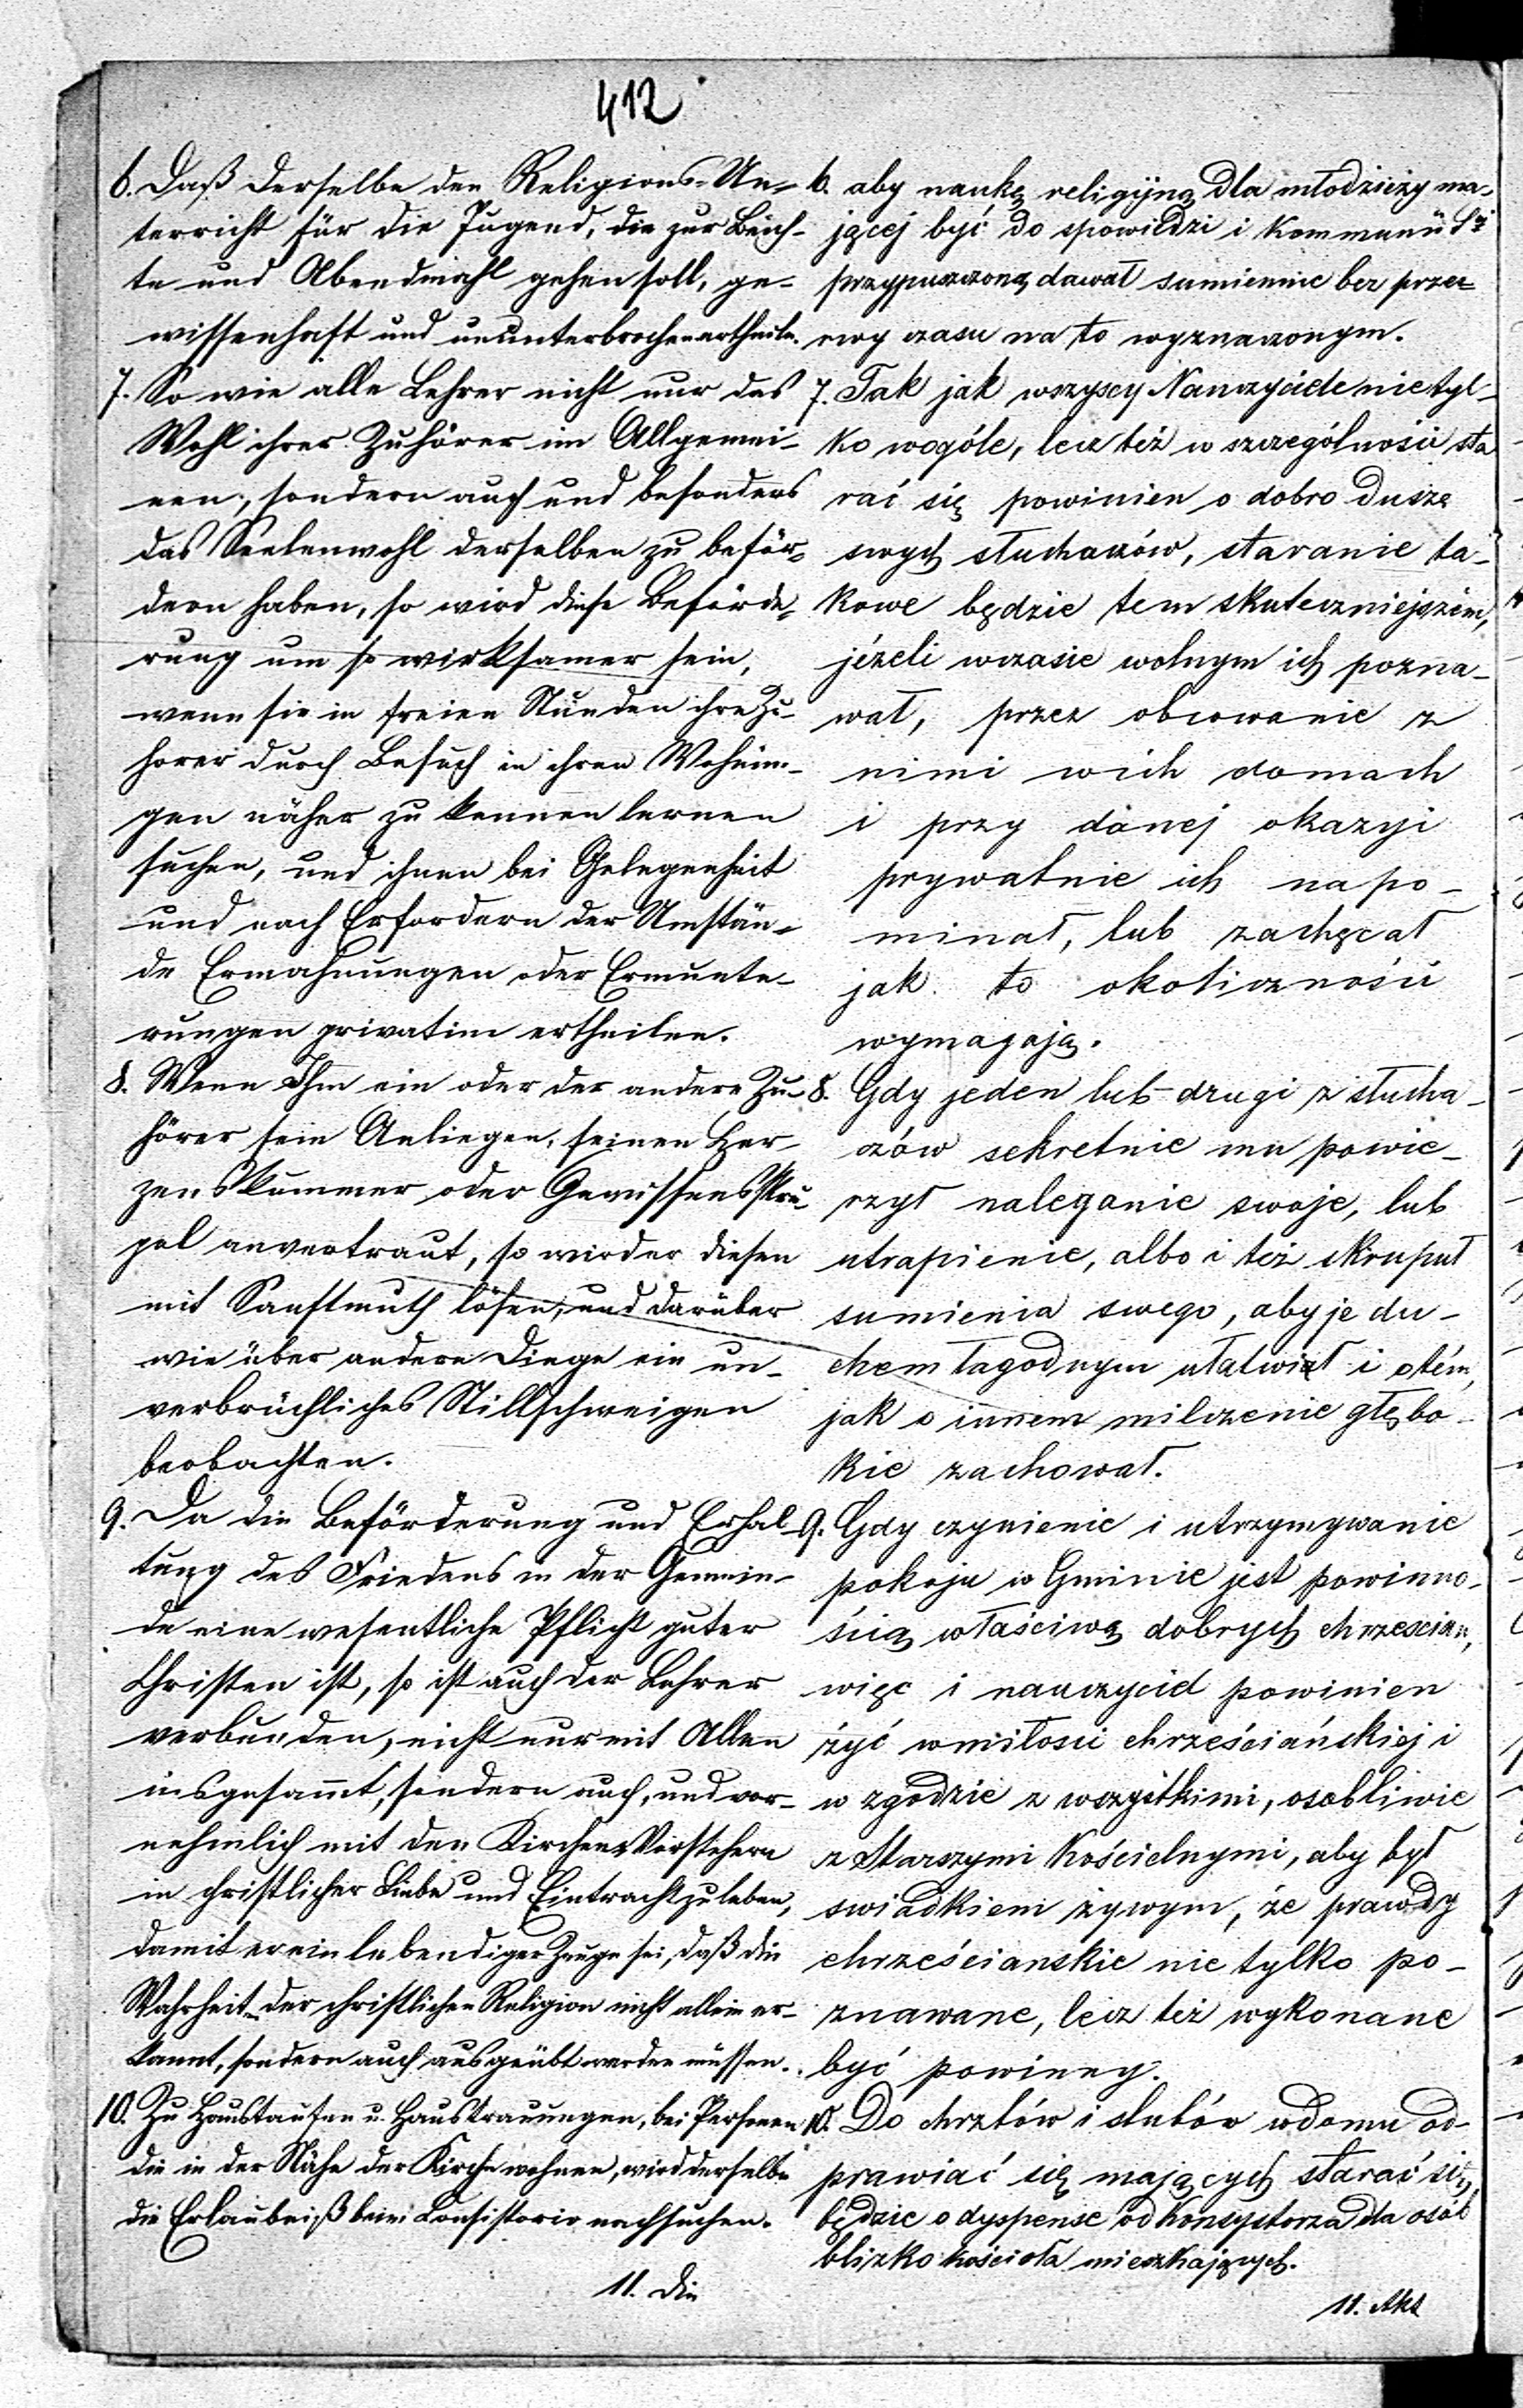 412
6. Daß derselbe den Religions-Un-
terricht für die Jugend, die zur Beich-
te und Abendmahl gehen soll, ge-
wissenhaft und ununterbrochen ertheile.
7. So wie alle Lehrer nicht nur das
Wohl ihrer Zuhörer im Allgemei-
nen, sondern auch und besonders
das Seelenwohl derselben zu beför-
dern haben, so wird diese Beförde-
rung um so wirksamer sein,
wenn sie in freien Stunden ihre Zu-
horer durch Besuch in ihren Wohnun-
gen näher zu kennen lernen
suchen, und ihnen bei Gelegenheit
und nach Erfordern der Umstän-
de Ermahnungen oder Ermunte-
rungen privatim ertheilen.
8. Wenn Ihm ein oder der andere Zu-
hörer sein Anliegen, seinen Her-
zenskummer oder Gewissensskru-
pel anvertraut, so wird er diesen
mit Sanftmuth lösen, und darüber
wie über andere Dinge ein un-
verbrüchliches Stillschweigen
beobachten.
9. Da die Beförderung und Erhal-
tung des Friedens in der Gemein-
de eine wesentliche Pflicht guter
Christen ist, so ist auch der Lehrer
verbunden, nicht nur mit Allen
insgesam̄t, sondern auch, und vor-
nehmlich mit den Kirchen-Vorstehern
in christlicher Liebe und Eintracht zu leben,
damit er ein lebendiger Zeuge sei, daß die
Wahrheit der christlichen Religion nicht allein er-
kannt, sondern auch ausgeübt werden müssen.
10. Zu Haustaufen u. Haustrauungen, bei Personen
die in der Nähe der Kirche wohnen, wird derselbe
die Erlaubniß beim Consistorio nachsuchen.
11. Die
6. aby naukę religijną dla młodzieży ma-
jącej być do spowiedzi i Kommunii Śtéj
przypuszczoną dawał sumiennie bez przer-
wy czasu na to wyznaczonym.
7. Tak jak wszyscy Nauczyciele nie tyl-
ko wogóle, lecz téż w szczególności sta
rać się powinien o dobro dusze
swych słuchaczów, staranie ta-
kowe będzie tem skuteczniejszém,
jéżeli wczasie wolnym ich pozna-
wał, przez obcowanie z
nimi wich domach
i przy danej okazyi
prywatnie ich napo-
minał, lub zachęcał
jak to okoliczności
wymagają.
8. Gdy jeden lub drugi z słucha-
czów sekretnie mu powie-
rzył naleganie swoje, lub
utrapienie, albo i też skrupuł
sumienia swego, aby je du-
chem łagodnym ułatwiał i o tém,
jak o innem milczenie głębo-
kie zachował.
9. Gdy czynienie i utrzymywanie
pokoju w Gminie jest powinno-
ścią właściwą dobrych chrzescian,
więc i nauczyciel powinien
żyć w miłości chrześciańskiej i
w zgodzie z wszystkimi, osobliwie
z Starszymi Kościelnymi, aby był
swiadkiem żywym, że prawdy
chrześcianskie nie tylko po-
znawane, lecz też wykonane
być powinny.
10. Do chrztów i slubów wdomu od-
prawiać się mających starać się
będzie o dyspense od Konsystorza dla osób
blizko kościoła mieszkających.
11. Akt